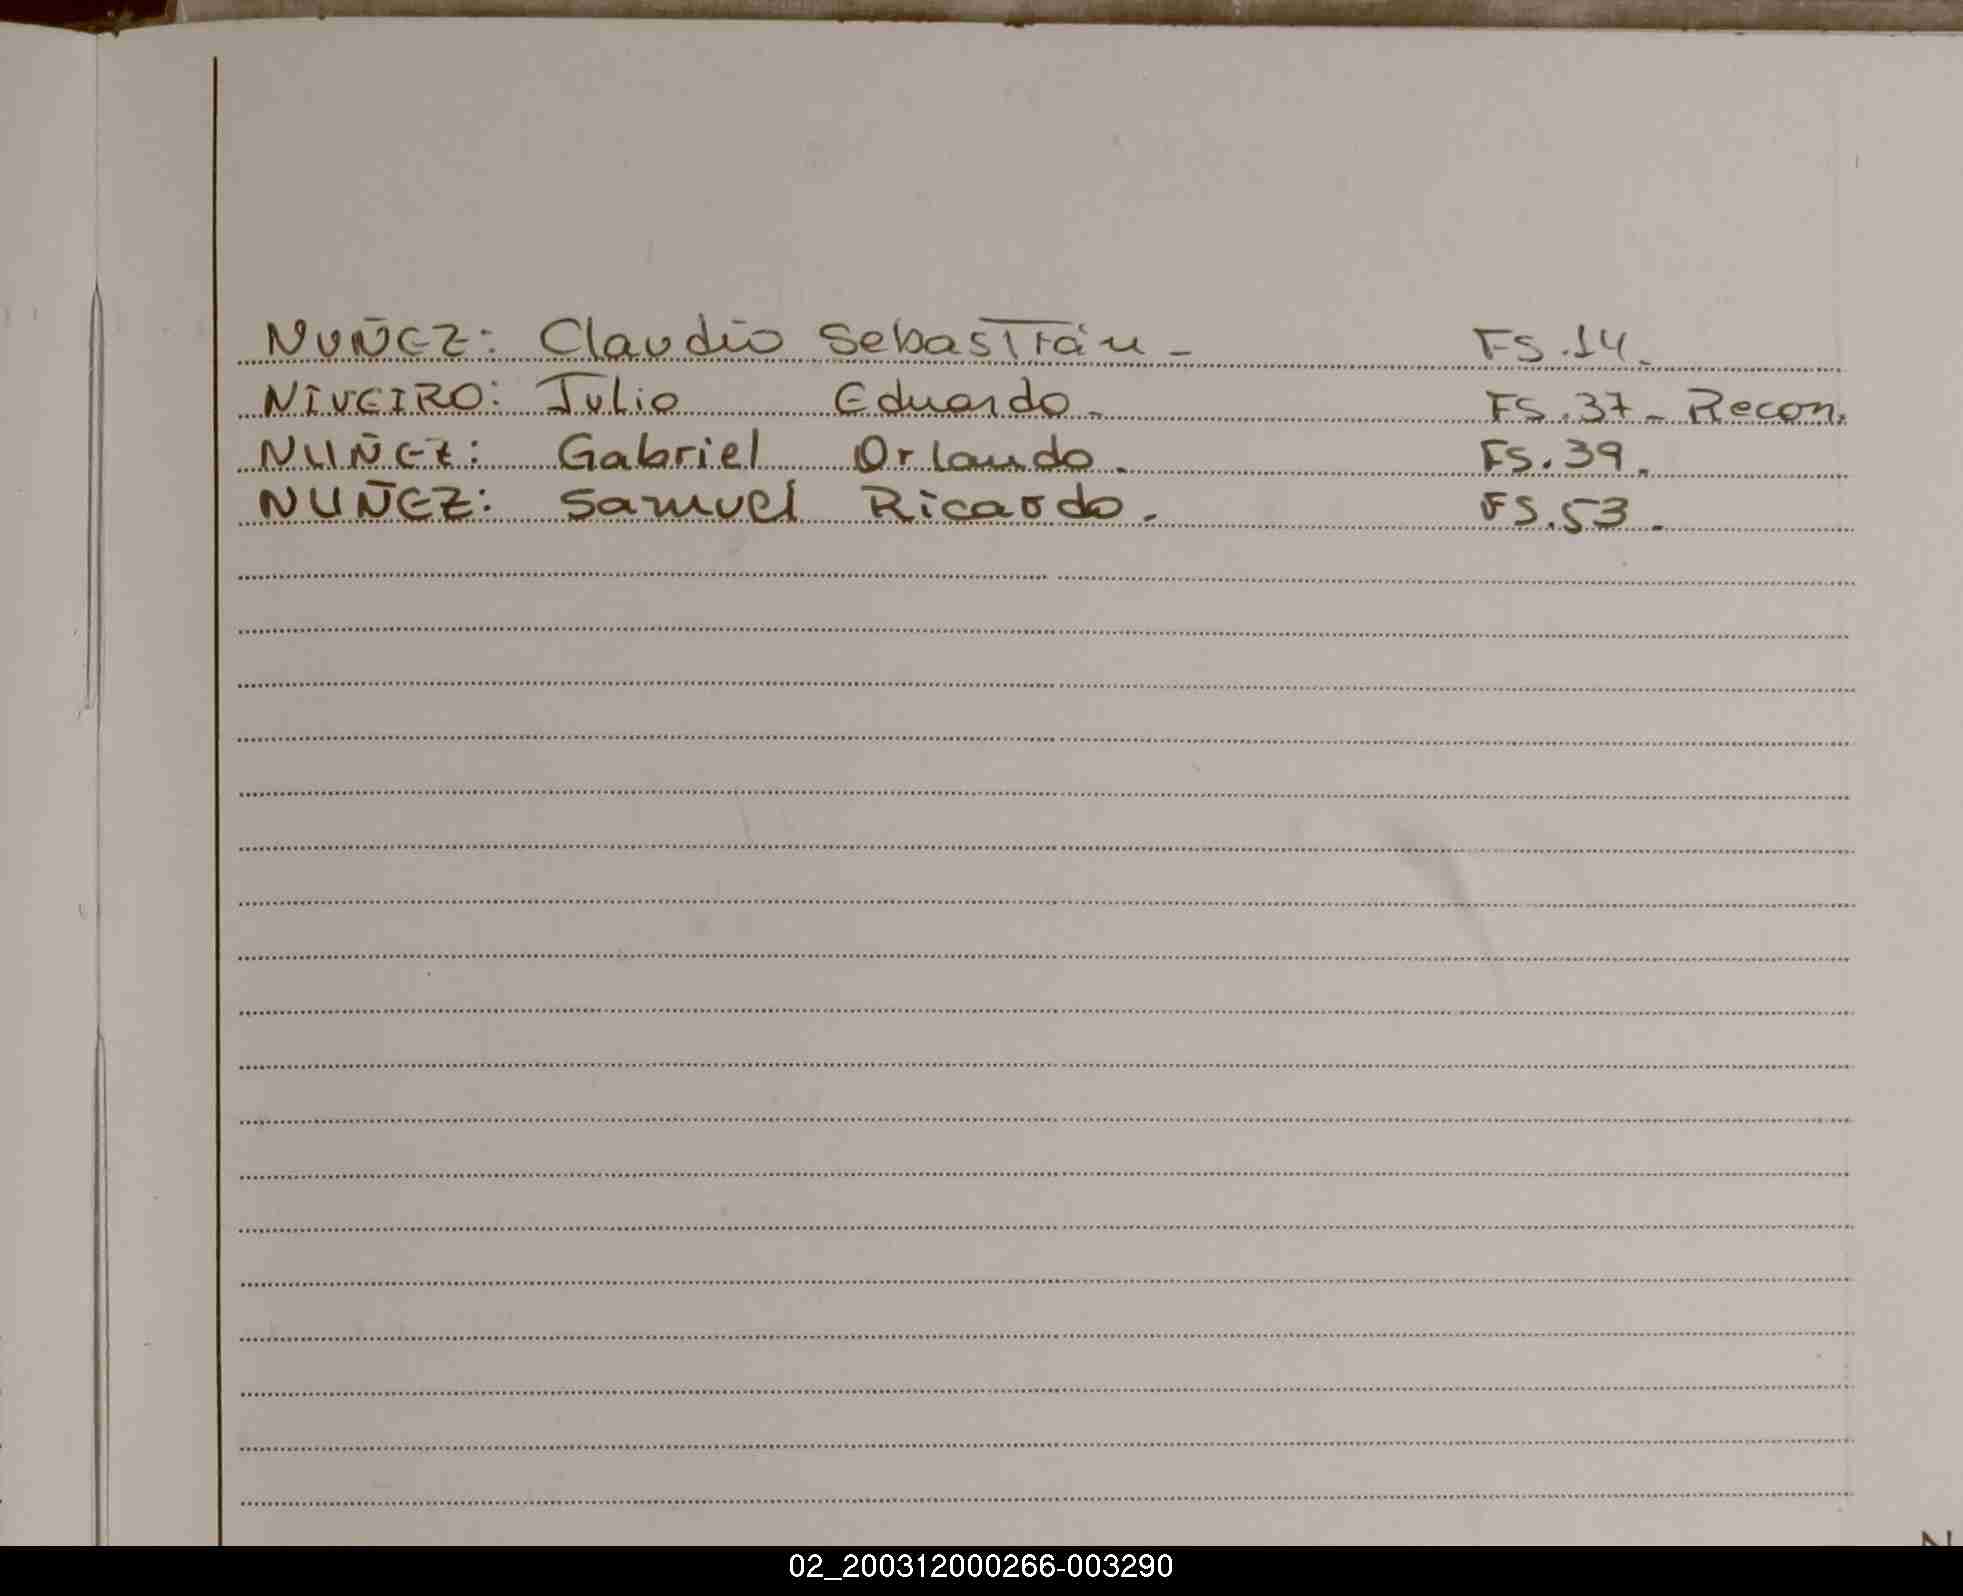 NUÑEZ: Claudio Sebastián - FS.14.
NIVEIRO: Julio Eduardo. FS.37- Recon.
NUÑEZ: Gabriel Orlando. FS.39.
NUÑEZ: Samuel Ricardo. FS.53.
N
02_200312000266-003290